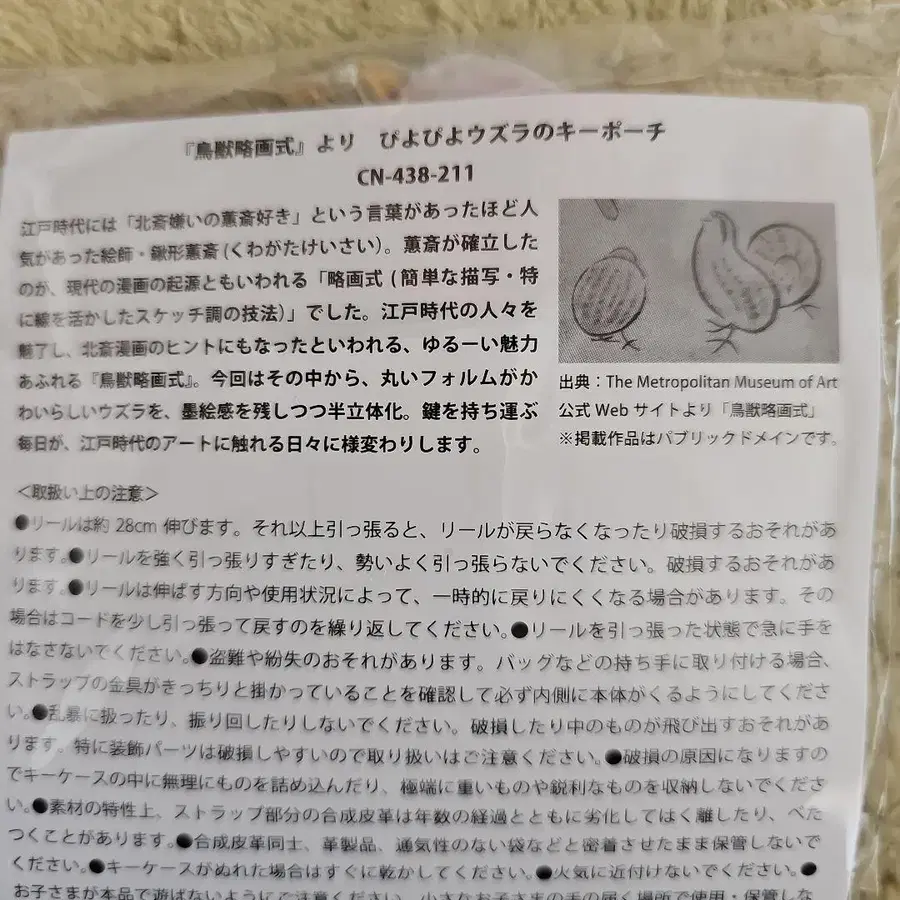 『鳥獣略画式』より　ぴよぴよウズラのキーポーチ
CN-438-211
江戸時代には「北斎嫌いの蕙斎好き」という言葉があったほど人
気があった絵師・鍬形蕙斎(くわがたけいさい)。蕙斎が確立した
のが、現代の漫画の起源ともいわれる「略画式(簡単な描写・特
に線を活かしたスケッチ調の技法)」でした。江戸時代の人々を
魅了し、北斎漫画のヒントにもなったといわれる、ゆるーい魅力
あふれる『鳥獣略画式』。今回はその中から、丸いフォルムがか
わいらしいウズラを、墨絵感を残しつつ半立体化。鍵を持ち運ぶ
毎日が、江戸時代のアートに触れる日々に様変わりします。
出典：The Metropolitan Museum of Art
公式 Web サイトより「鳥獣略画式」
※掲載作品はパブリックドメインです。
＜取扱い上の注意＞
●リールは約 28cm 伸びます。それ以上引っ張ると、リールが戻らなくなったり破損するおそれがあ
ります。●リールを強く引っ張りすぎたり、勢いよく引っ張らないでください。破損するおそれがあ
ります。●リールは伸ばす方向や使用状況によって、一時的に戻りにくくなる場合があります。その
場合はコードを少し引っ張って戻すのを繰り返してください。●リールを引っ張った状態で急に手を
はなさないでください。●盗難や紛失のおそれがあります。バッグなどの持ち手に取り付ける場合、
ストラップの金具がきっちりと掛かっていることを確認して必ず内側に本体がくるようにしてくださ
い。●乱暴に扱ったり、振り回したりしないでください。破損したり中のものが飛び出すおそれがあ
ります。特に装飾パーツは破損しやすいので取り扱いはご注意ください。●破損の原因になりますの
でキーケースの中に無理にものを詰め込んだり、極端に重いものや鋭利なものを収納しないでくださ
い。●素材の特性上、ストラップ部分の合成皮革は年数の経過とともに劣化してはく離したり、べた
つくことがあります。●合成皮革同士、革製品、通気性のない袋などと密着させたまま保管しないで
ください。●キーケースがぬれた場合はすぐに乾かしてください。●火気に近付けないでください。●
お子さまが本品で遊ばないようにご注意ください。小さなお子さまの手の届く場所で使用・保管しな